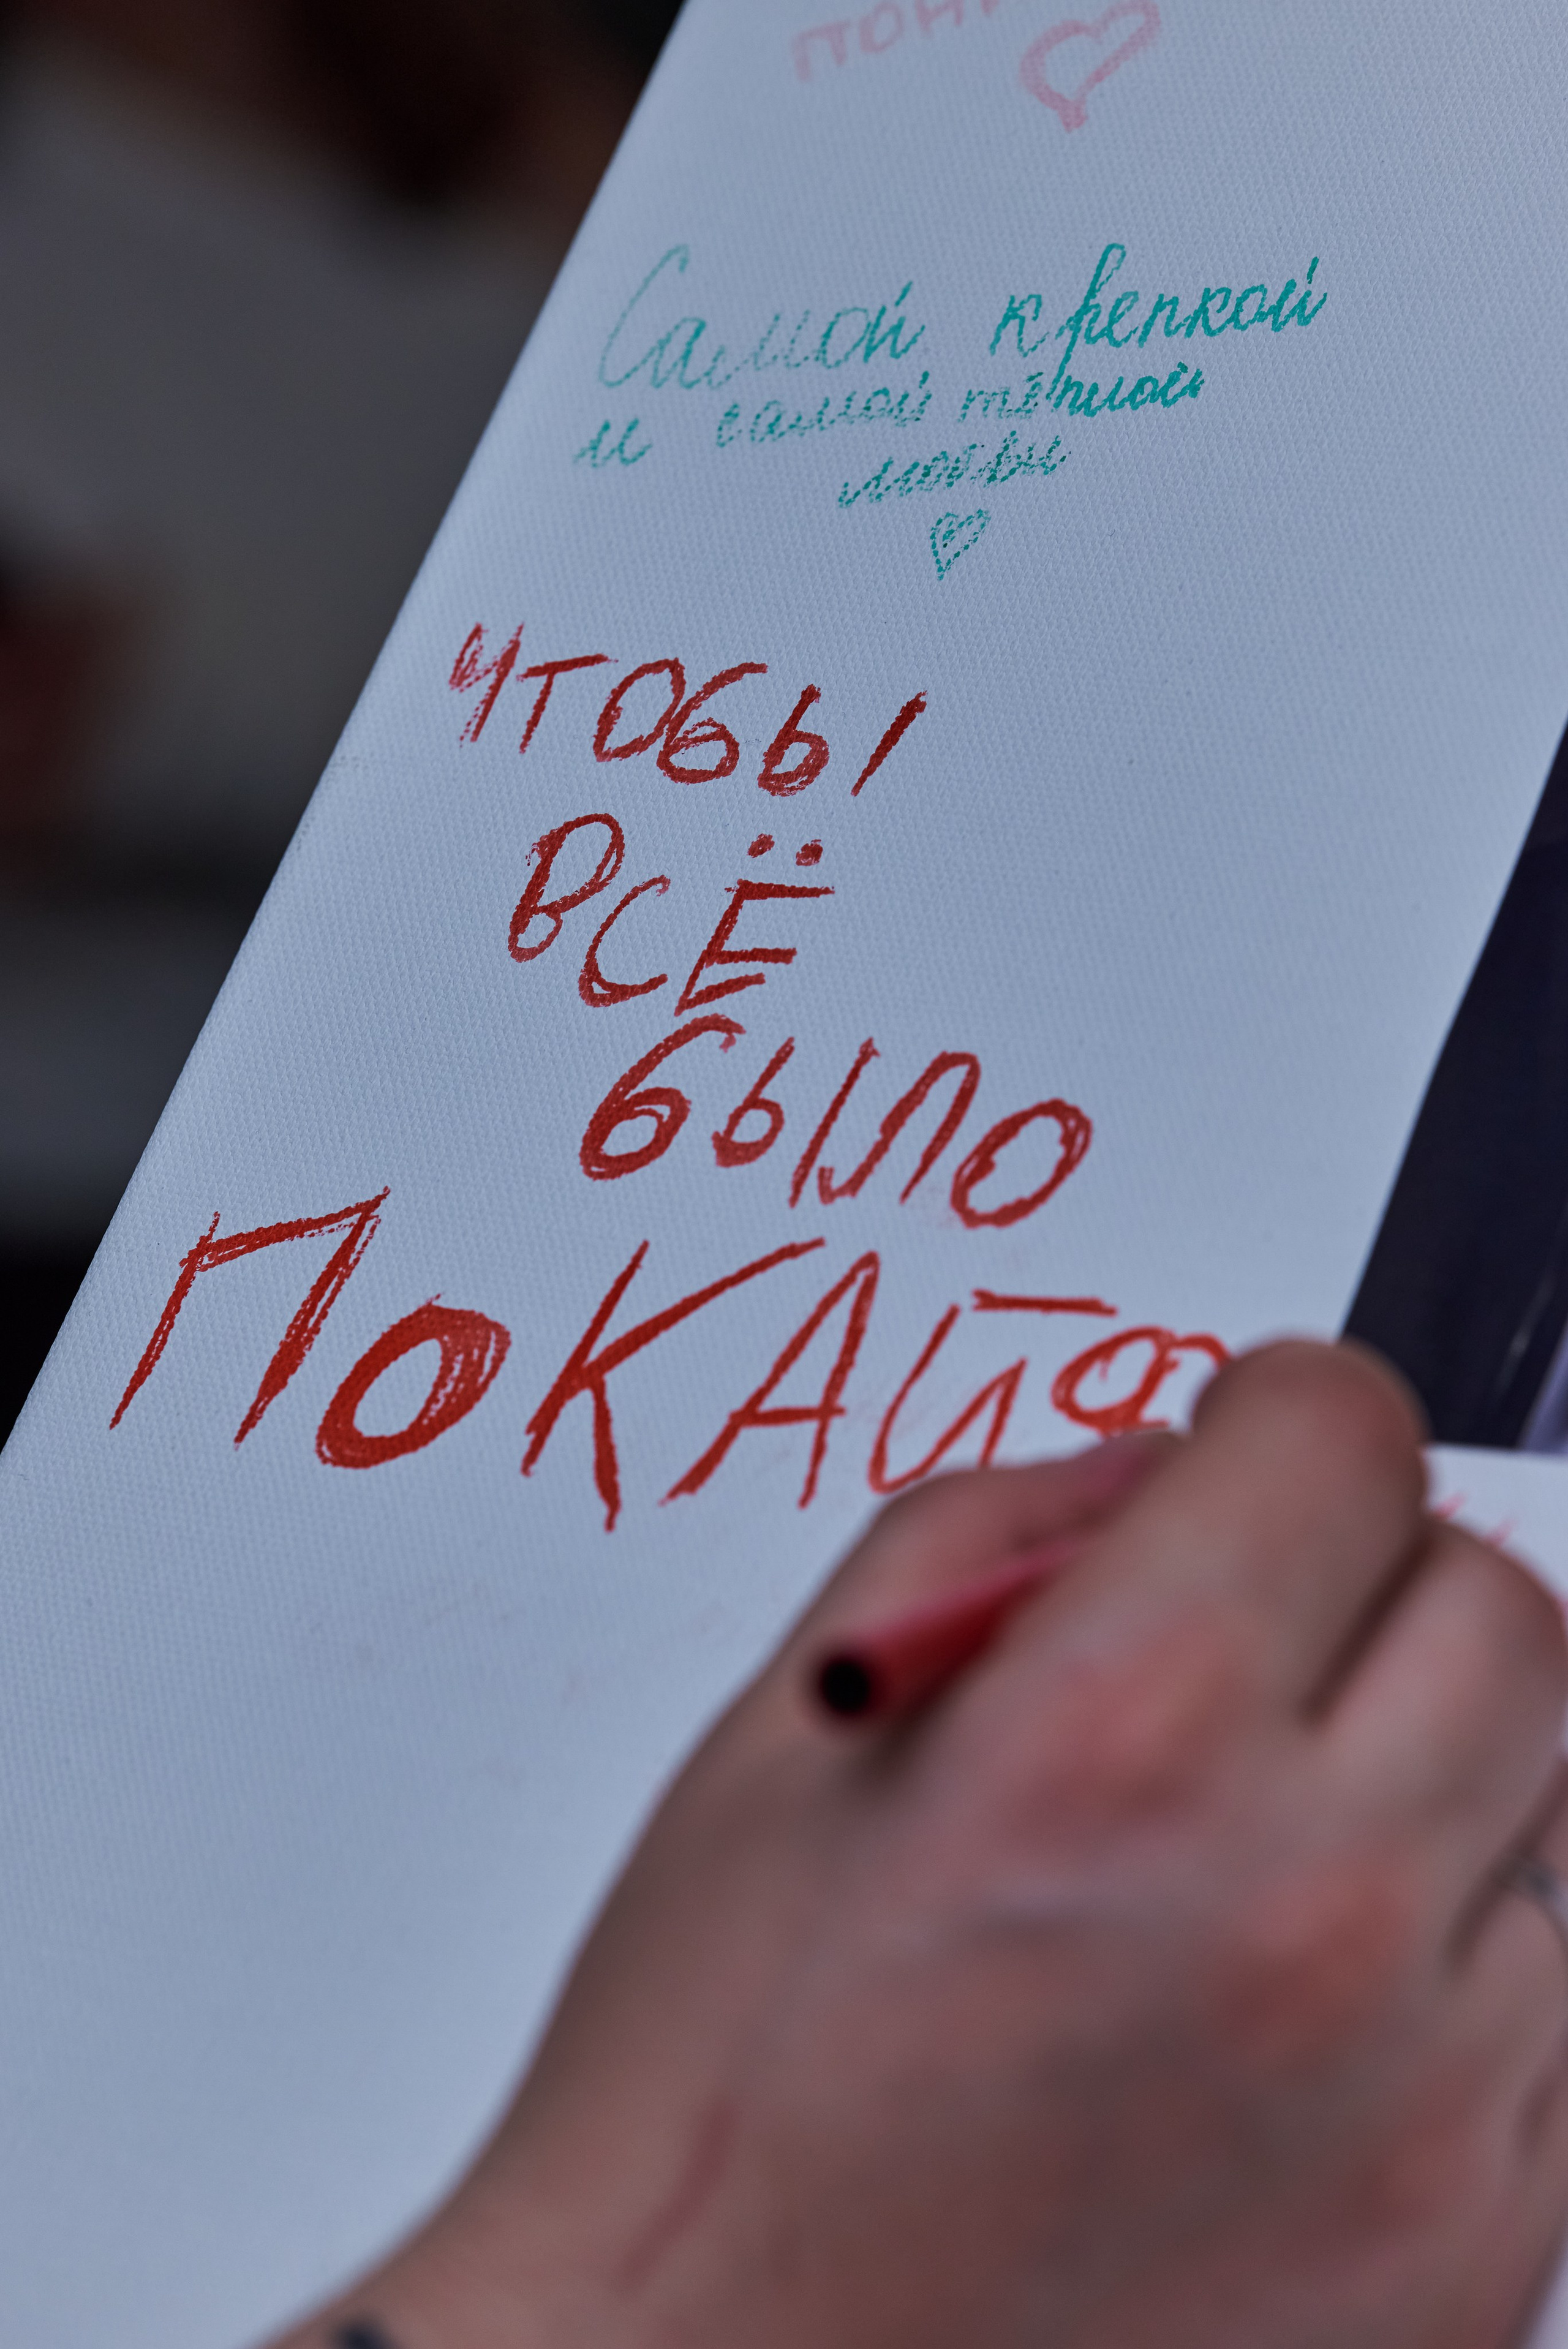 Самой крепкой
и самой тёплой
любви
чтобы
всЁ
было
ПОКАЙФ